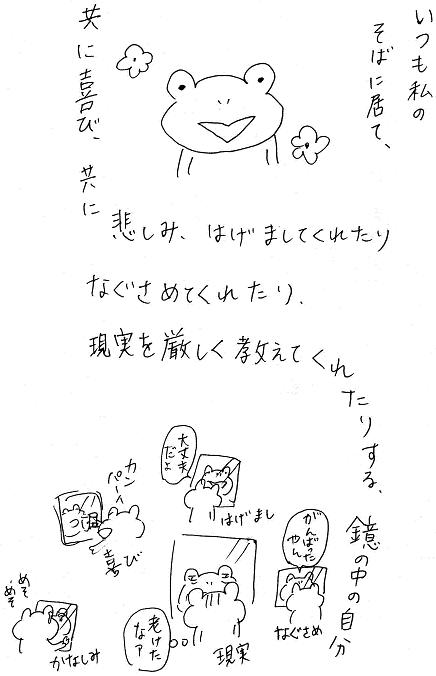 いつも私の
そばに居て、
共に喜び、共に
悲しみ、はげましてくれたり
なぐさめてくれたり、
現実を厳しく教えてくれたりする、
鏡の中の自分
大丈夫
だよ
はげまし
カン
ペーイ
喜び
がんばった
やん
なぐさめ
老けた
なア
現実
めそ
めそ
かなしみ